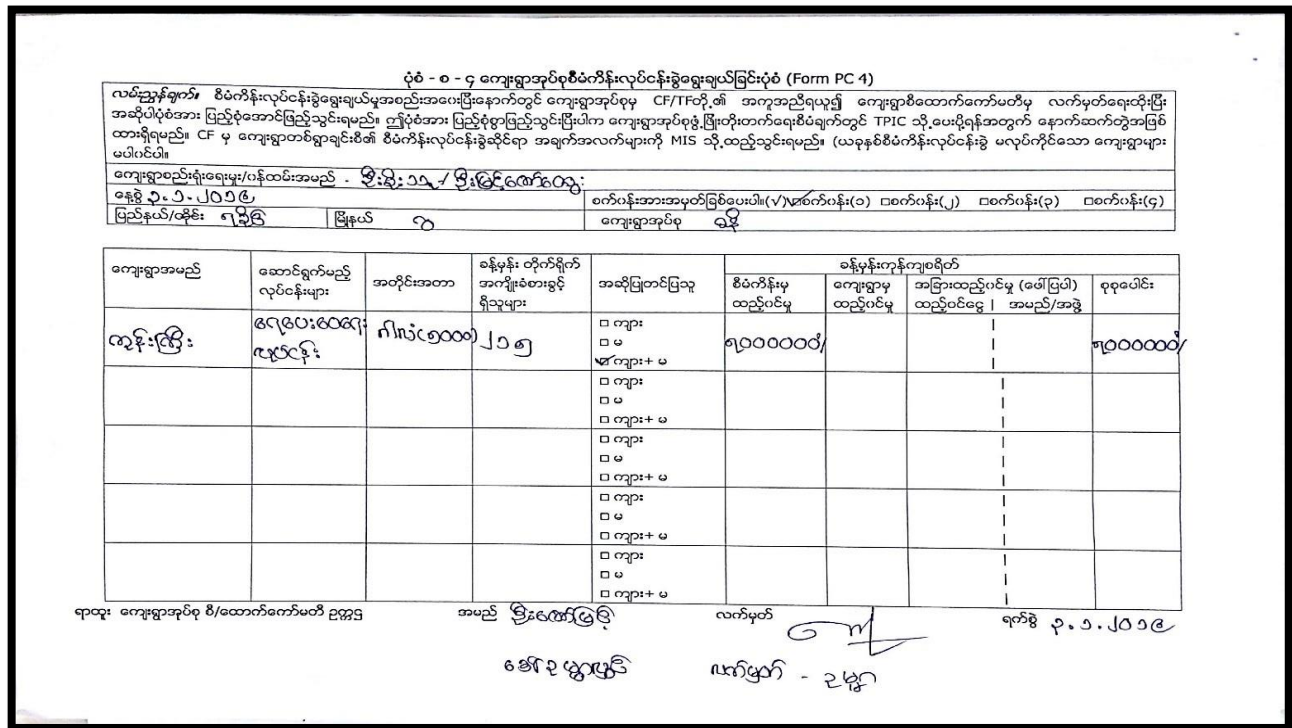 ပုံစံ - စ - ၄ ကျေးရွာအုပ်စုစီမံကိန်းလုပ်ငန်းခွဲရွေးချယ်ခြင်းပုံစံ (Form PC 4)
လမ်းညွှန်ချက်။ စီမံကိန်းလုပ်ငန်းခွဲရွေးချယ်မှုအစည်းအဝေးပြီးနောက်တွင် ကျေးရွာအုပ်စုမှ CF/TFတို့၏ အကူအညီရယူ၍ ကျေးရွာစီထောက်ကော်မတီမှ လက်မှတ်ရေးထိုးပြီး
အဆိုပါပုံစံအား ပြည့်စုံအောင်ဖြည့်သွင်းရမည်။ ဤပုံစံအား ပြည့်စုံစွာဖြည့်သွင်းပြီးပါက ကျေးရွာအုပ်စုဖွံ့ဖြိုးတိုးတက်ရေးစီမံချက်တွင် TPIC သို့ပေးပို့ရန်အတွက် နောက်ဆက်တွဲအဖြစ်
ထားရှိရမည်။ CF မှ ကျေးရွာတစ်ရွာချင်းစီ၏ စီမံကိန်းလုပ်ငန်းခွဲဆိုင်ရာ အချက်အလက်များကို MIS သို့ထည့်သွင်းရမည်။ (ယခုနှစ်စီမံကိန်းလုပ်ငန်းခွဲ မလုပ်ကိုင်သော ကျေးရွာများ
မပါဝင်ပါ။
ကျေးရွာစည်းရုံးရေးမှူး/ဝန်ထမ်းအမည် -
နေ့စွဲ ၃.၁.၂၀၁၉ စက်ဝန်းအားအမှတ်ခြစ်ပေးပါ။(√) ☑စက်ဝန်း(၁) □စက်ဝန်း(၂) □စက်ဝန်း(၃) □စက်ဝန်း(၄)
ပြည်နယ်/တိုင်း ရခိုင် မြို့နယ် ဂွ ကျေးရွာအုပ်စု
ကျေးရွာအမည် ဆောင်ရွက်မည့် လုပ်ငန်းများ အတိုင်းအတာ ခန့်မှန်း တိုက်ရိုက် အကျိုးခံစားခွင့် ရှိသူများ အဆိုပြုတင်ပြသူ ခန့်မှန်းကုန်ကျစရိတ်
စီမံကိန်းမှ ထည့်ဝင်မှု ကျေးရွာမှ ထည့်ဝင်မှု အခြားထည့်ဝင်မှု (ဖော်ပြပါ) ထည့်ဝင်ငွေ | အမည်/အဖွဲ့ စုစုပေါင်း
ကွန်းကြီး ရေပေးဝေရေး လုပ်ငန်း ဂါလံ(၅၀၀၀) ၂၁၅
□ ကျား
□ မ
☑ ကျား+ မ
□ ကျား
□ မ
□ ကျား+ မ
□ ကျား
□ မ
□ ကျား+ မ
□ ကျား
□ မ
□ ကျား+ မ
□ ကျား
□ မ
□ ကျား+ မ
ရာထူး ကျေးရွာအုပ်စု စီ/ထောက်ကော်မတီ ဥက္ကဋ္ဌ အမည် ဦးဇော်မြင့် လက်မှတ် ရက်စွဲ ၃.၁.၂၀၁၉
လက်မှတ် -